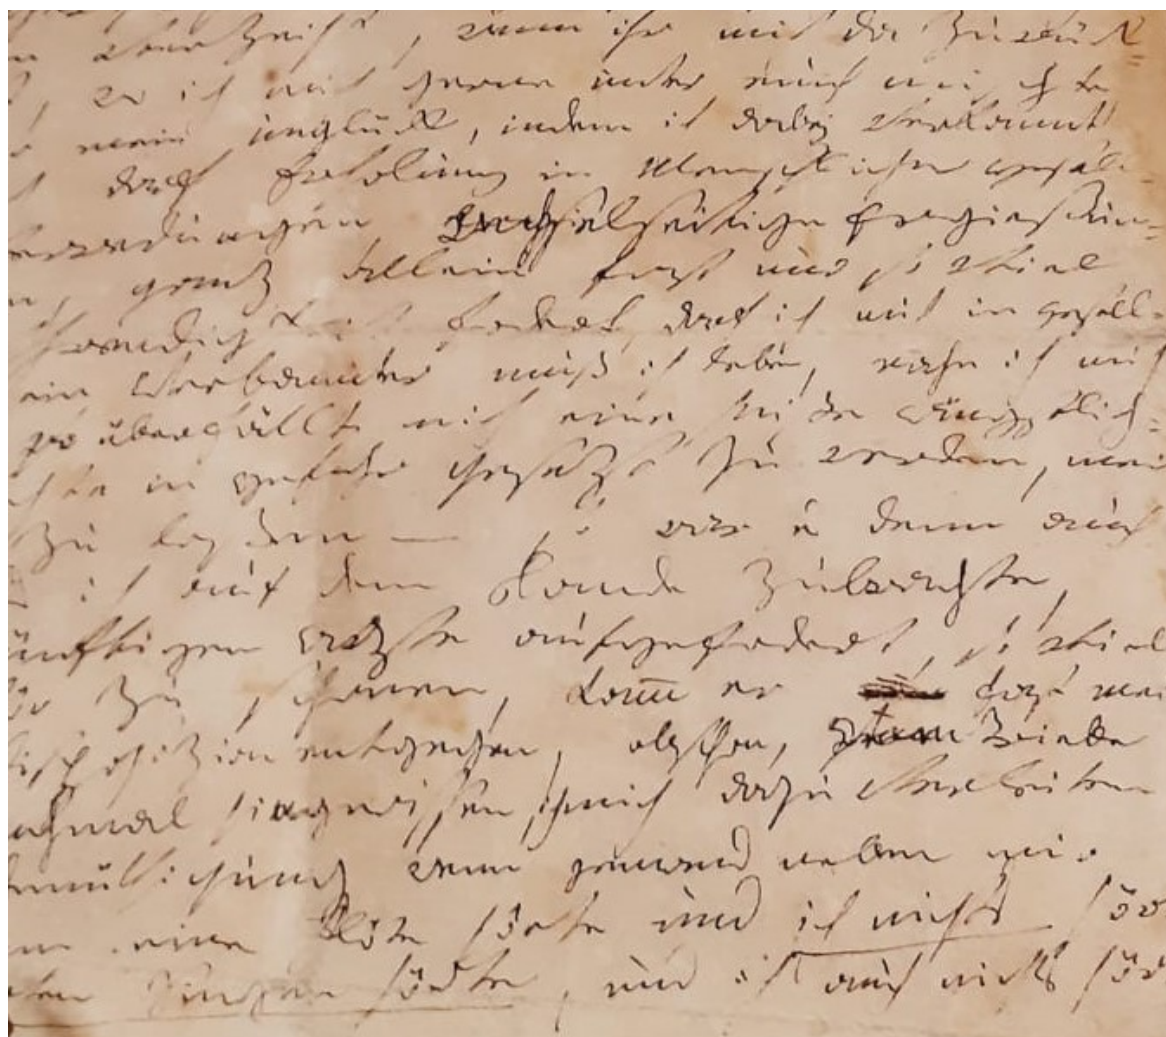 verzeiht, wenn ihr mich da zurück=
wo ich mich gerne unter euch mischte
mein unglück, indem ich dabey verkannt
darf Erholung in Menschlicher gesell=
Wechselseitige Ergießun=
ganz allein fast nur so viel
fodert, darf ich mich in gesell=
ein Verbannter muß ich leben, nahe ich mich
so überfällt mich eine heiße ängstlich=
in gefahr gesetzt zu werden, mei
zu laßen — so war es denn auch
ich auf dem Lande zubrachte,
ünftigen Arzte aufgefodert, so viel
ör zu schonen, kam̄ er fast mei
disposizion entgegen, obschon, vom Triebe
chmal hingerissen, ich mich dazu verleiten
müthigung wenn jemand neben mir
eine Flöte hörte und ich nichts hör
ten Singen hörte, und ich auch nichts hör